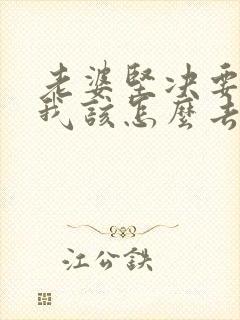 老婆堅决要
我該怎麼去
江公鉄